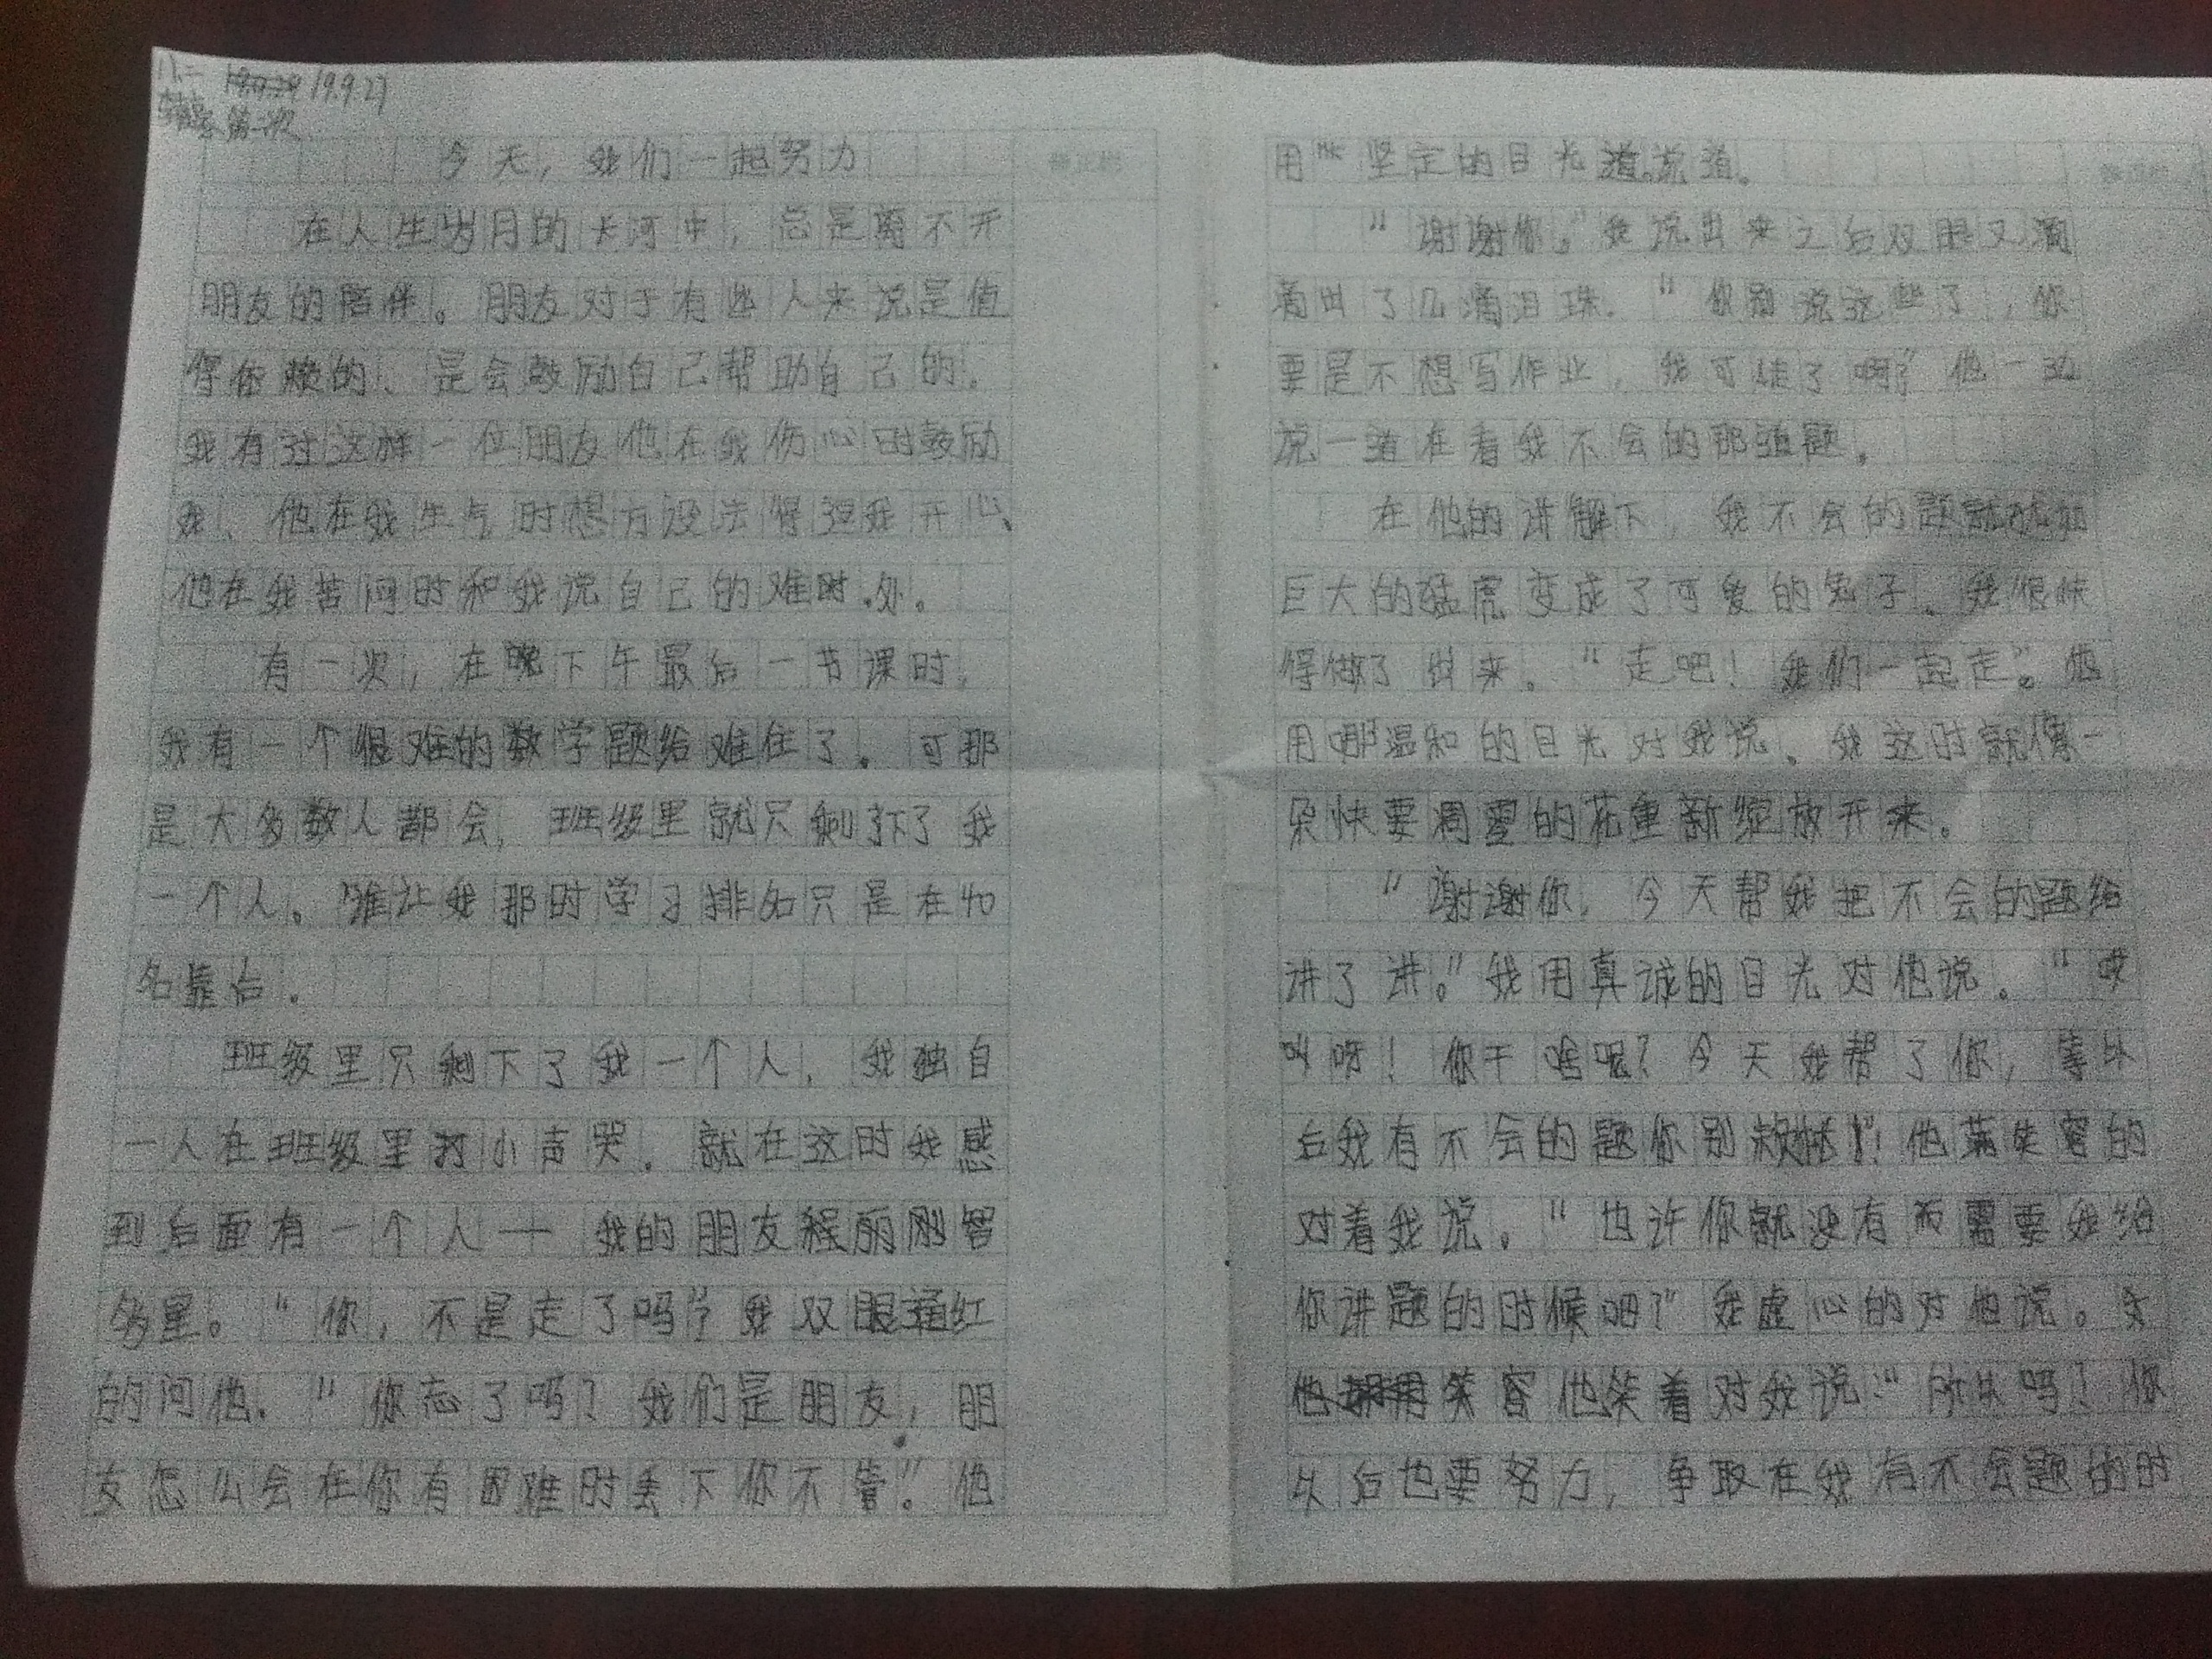 八二 19.9.27
第一次
今天，我们一起努力
在人生岁月的长河中，总是离不开
朋友的陪伴。朋友对于有些人来说是值
得依赖的、是会鼓励自己帮助自己的。
我有过这样一位朋友他在我伤心时鼓励
我、他在我生气时想方设法得逗我开心、
他在我苦闷时和我说自己的难处。
有一次，在下午最后一节课时，
我有一个很难的数学题给难住了。可那
是大多数人都会，班级里就只剩下了我
一个人。谁让我那时学习排名只是在40
名靠后.
班级里只剩下了我一个人，我独自
一人在班级里小声哭。就在这时我感
到后面有一个人一 我的朋友程丽刚
里。“你，不是走了吗”？我双眼通红
的问他。“你忘了吗？我们是朋友，朋
友怎么会在你有困难时丢下你不管。”他
用坚定的目光说道。
“谢谢你。”我说出来之后双眼又滴
滴出了几滴泪珠.“你别说这些了，你
要是不想写作业，我可走了啊？”他一边
说一道在看我不会的那道题。
在他的讲解下，我不会的题就犹如
巨大的猛虎变成了可爱的兔子、我很快
得做了出来。“走吧！我们一起走”。他
用那温和的目光对我说。我这时就像一
朵快要凋零的花重新绽放开来.
“谢谢你，今天帮我把不会的题给
讲了讲。”我用真诚的目光对他说。“哎
呀！你干啥呢？今天我帮了你，等以
后我有不会的题你别”！他的
对着我说。“也许你就没有需要我给
你讲题的时候吧？”我虚心的对他说。
他笑着对我说：“所以吗？你
以后也要努力，争取在我有不会题的时